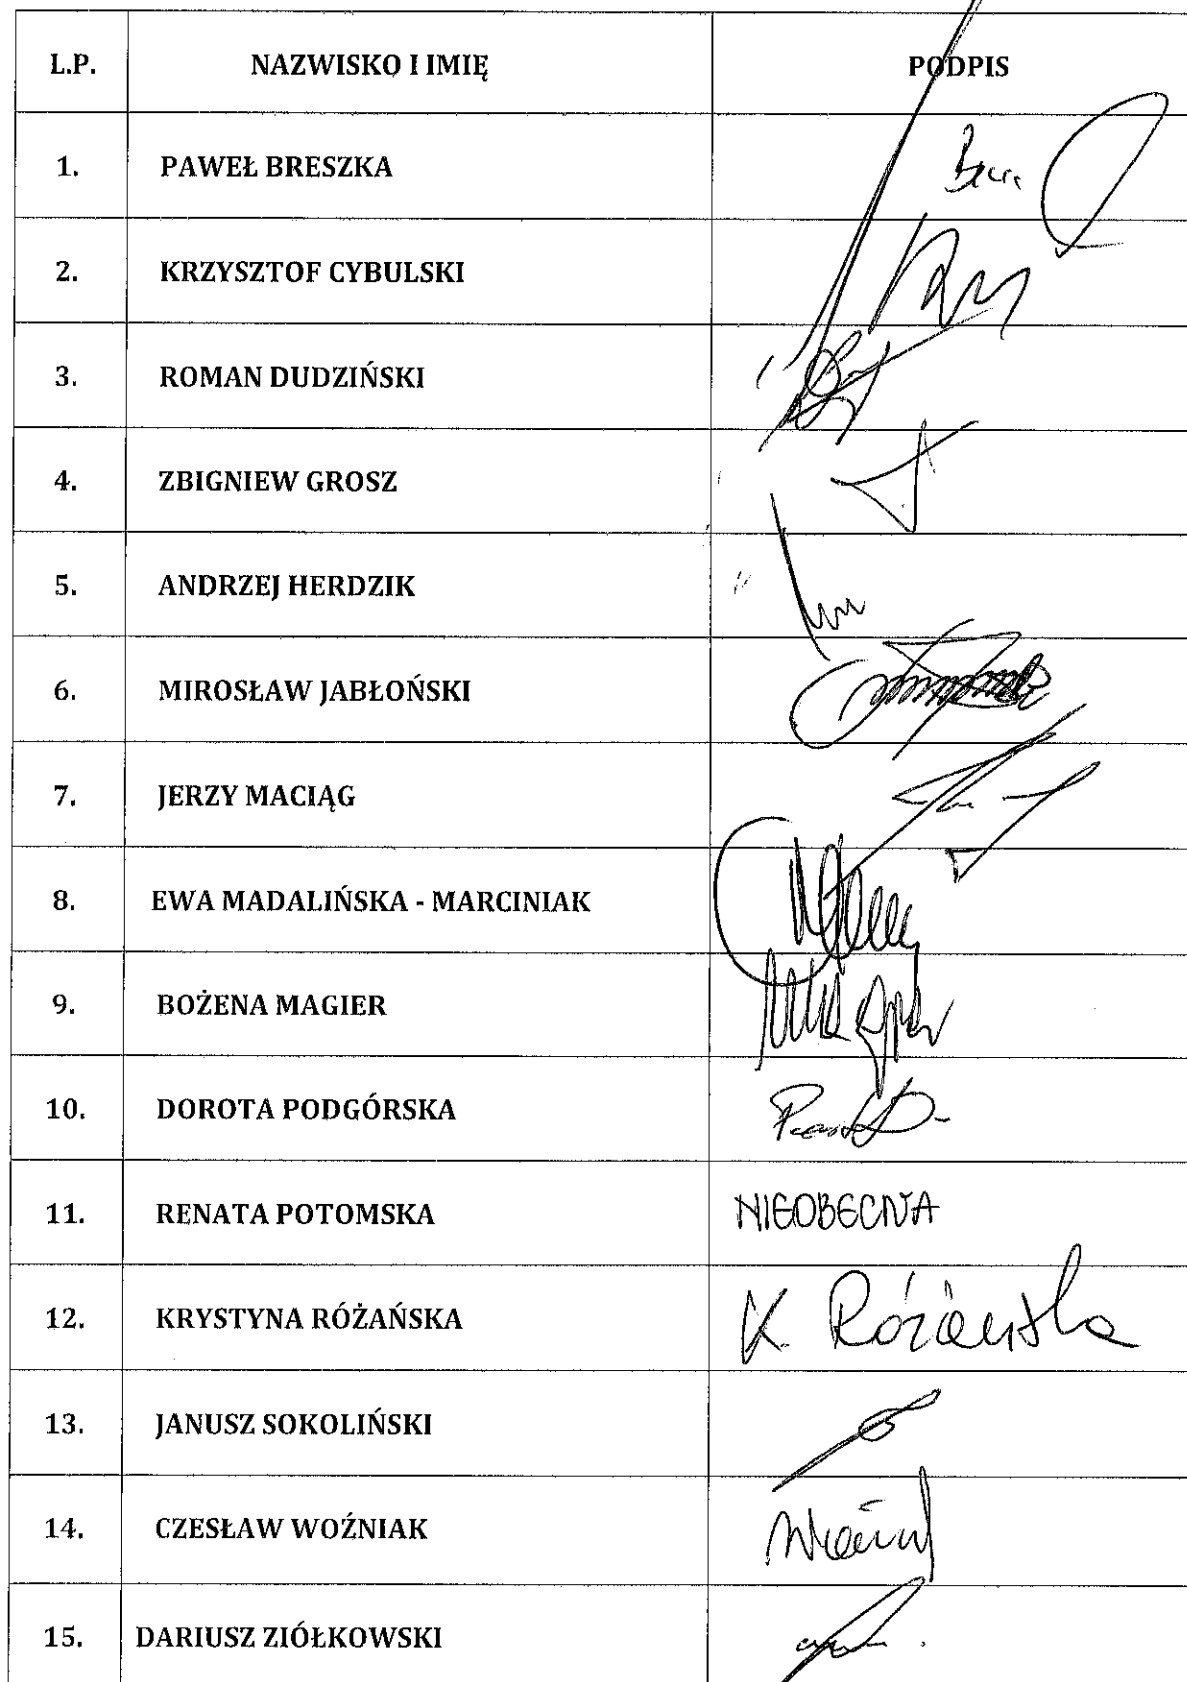 L.P. NAZWISKO I IMIĘ PODPIS
1. PAWEŁ BRESZKA
2. KRZYSZTOF CYBULSKI
3. ROMAN DUDZIŃSKI
4. ZBIGNIEW GROSZ
5. ANDRZEJ HERDZIK
6. MIROSŁAW JABŁOŃSKI
7. JERZY MACIĄG
8. EWA MADALIŃSKA - MARCINIAK
9. BOŻENA MAGIER
10. DOROTA PODGÓRSKA
11. RENATA POTOMSKA NIEOBECNA
12. KRYSTYNA RÓŻAŃSKA K. Różańska
13. JANUSZ SOKOLIŃSKI
14. CZESŁAW WOŹNIAK
15. DARIUSZ ZIÓŁKOWSKI